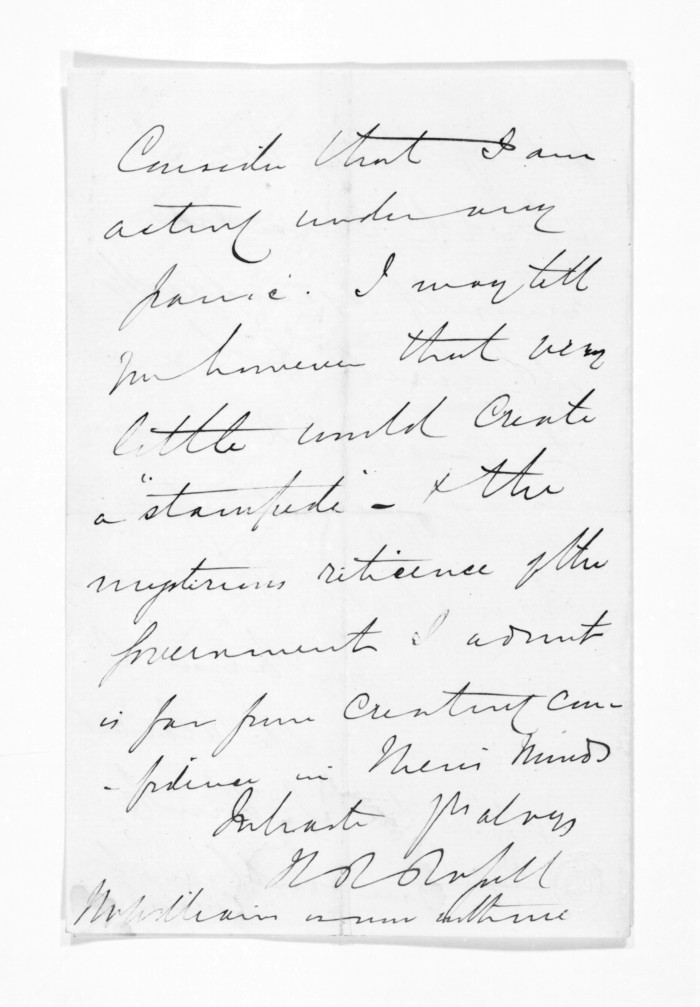 Consider that I am
acting under any
panic. I may tell
you however that very
little would create
a "stampede" - & the
mysterious reticence of the
Government I admit
is far from creating con-
-fidence in their minds
In haste Yrs always
H R Russell
is now with me